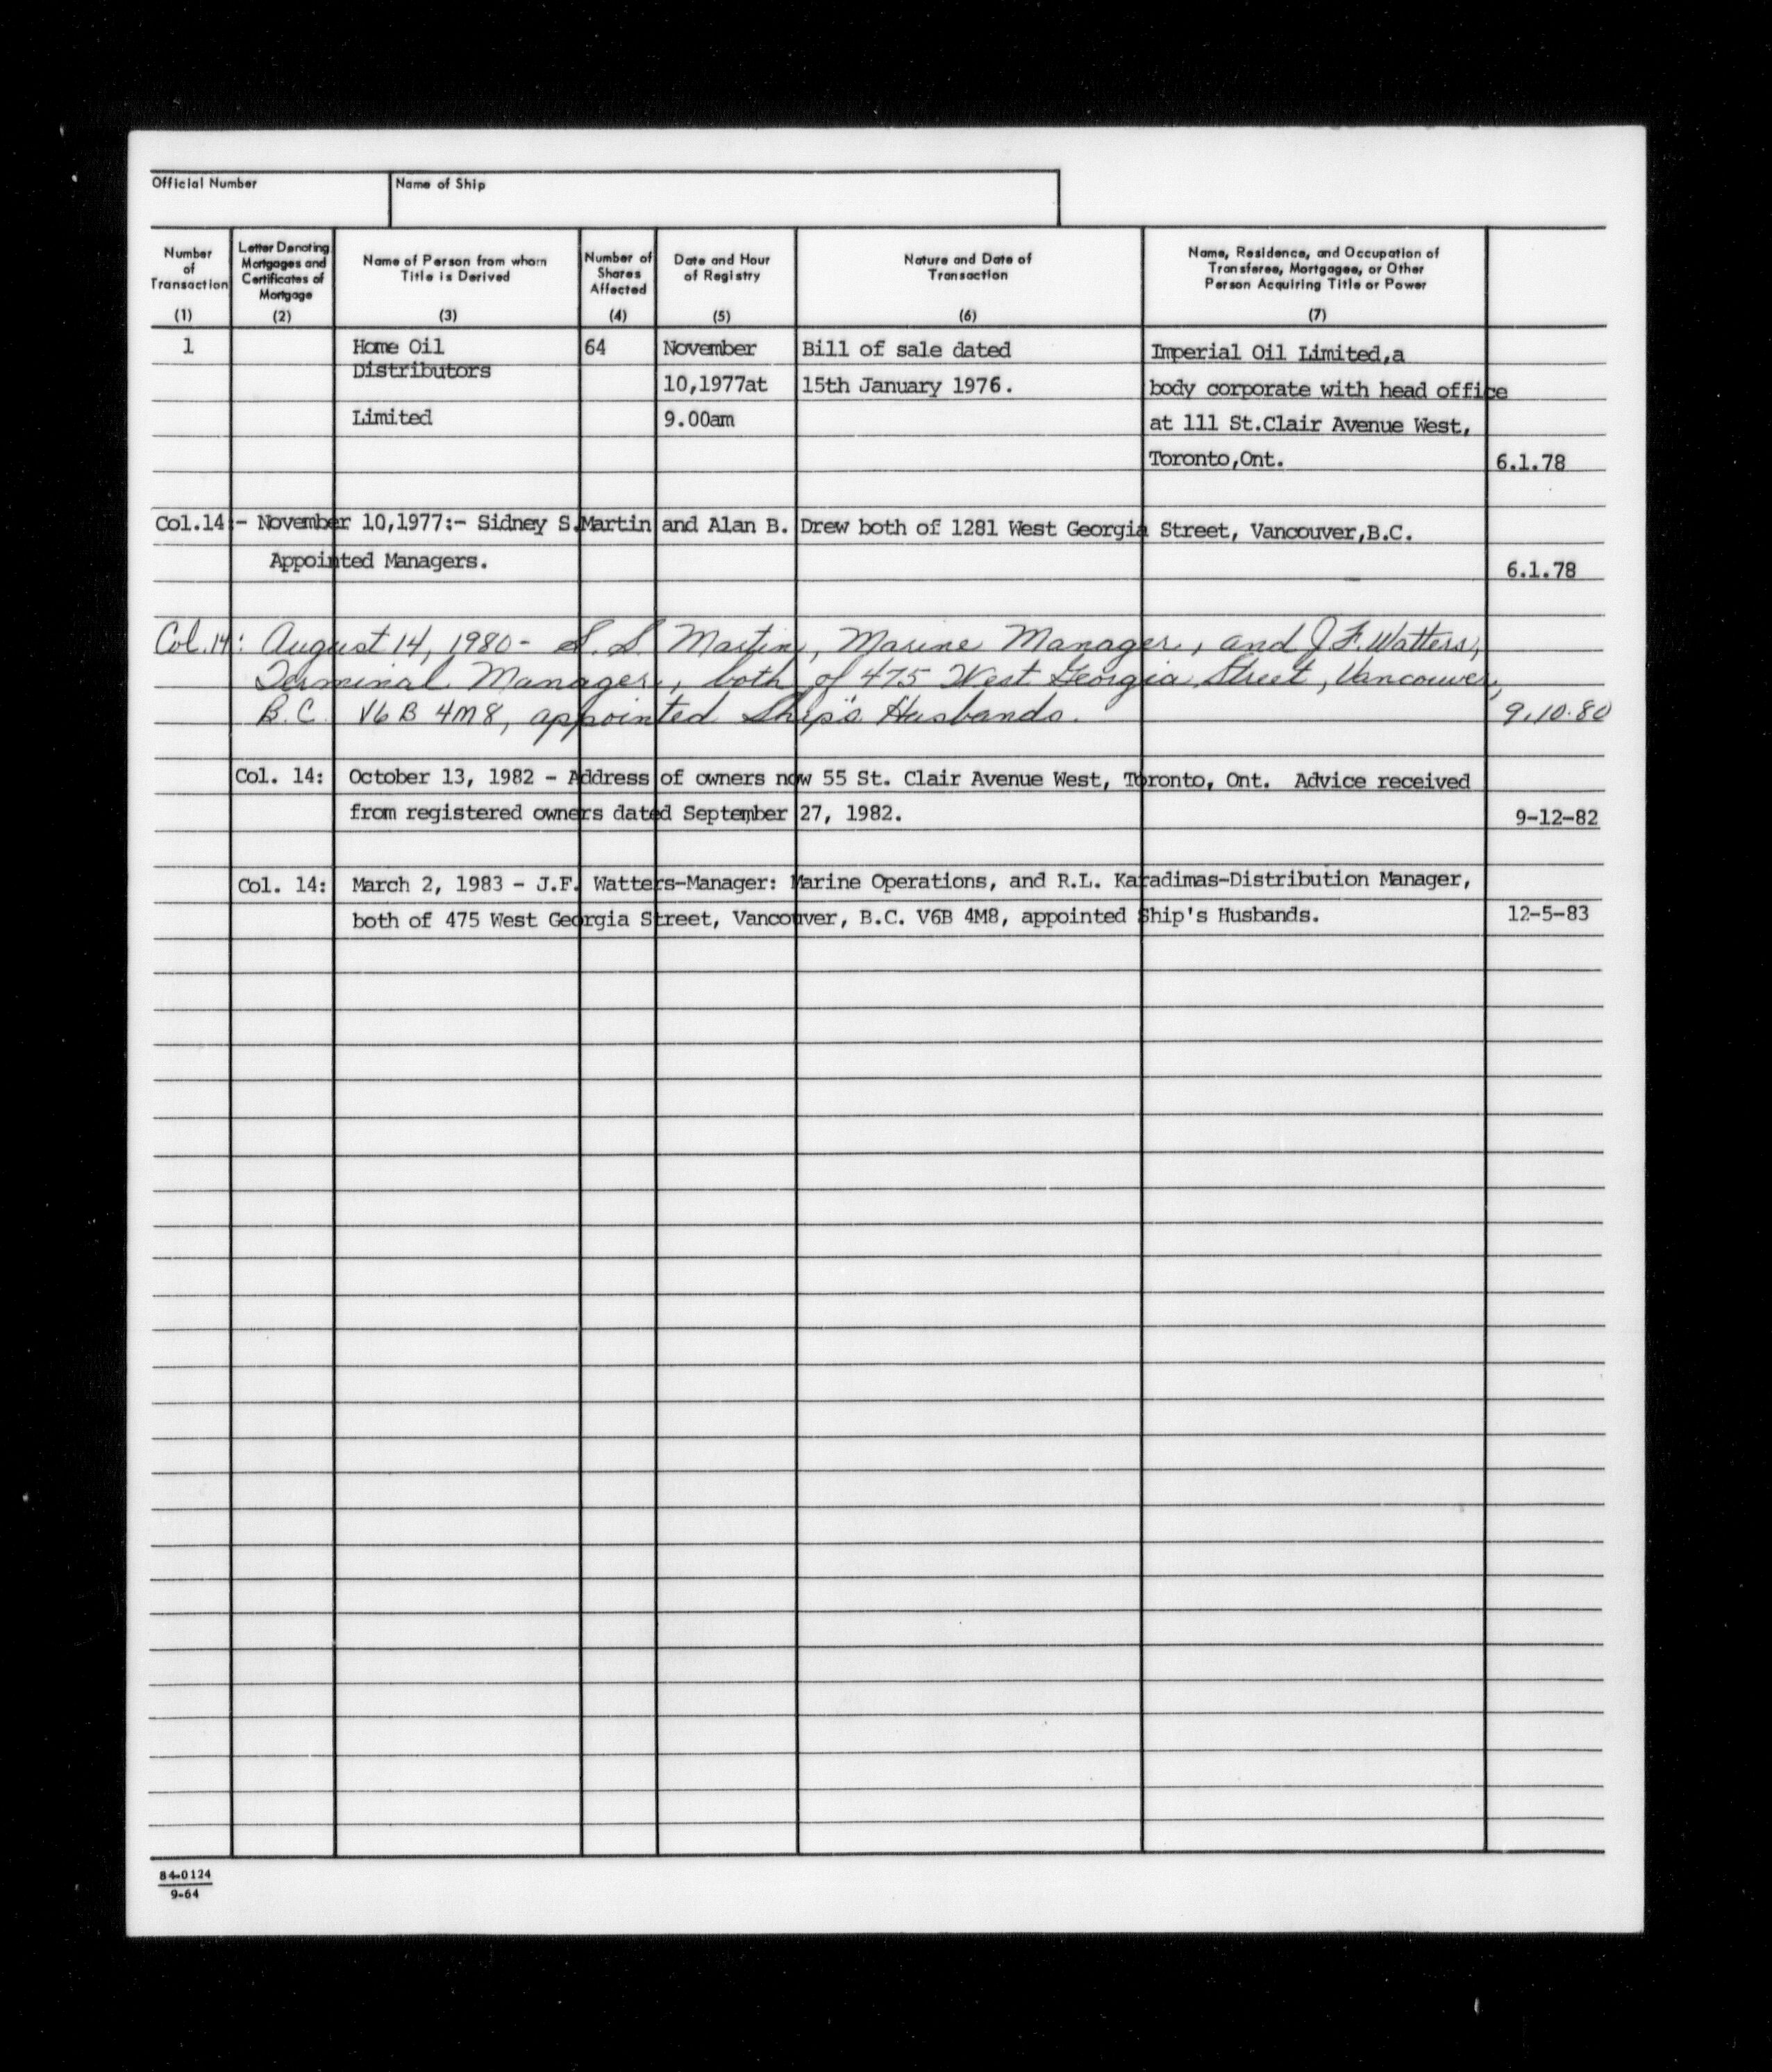 Official Number
Name of Ship
Number of Transaction (1)
Letter Denoting Mortgages and Certificates of Mortgage (2)
Name of Person from whom Title is Derived (3)
Number of Shares Affected (4)
Date and Hour of Registry (5)
Nature and Date of Transaction (6)
Name, Residence, and Occupation of Transferee, Mortgagee, or Other Person Acquiring Title or Power (7)
1 Home Oil 64 November Bill of sale dated Imperial Oil Limited,a
Distributors 10,1977at 15th January 1976. body corporate with head office
Limited 9.00am at 111 St.Clair Avenue West,
Toronto,Ont. 6.1.78
Col.14:- November 10,1977:- Sidney S.Martin and Alan B. Drew both of 1281 West Georgia Street, Vancouver,B.C.
Appointed Managers. 6.1.78
Col.14: August 14, 1980- S. S. Martin, Marine Manager, and J.F. Watters,
Terminal Manager, both of 475 West Georgia Street, Vancouver,
B.C. V6B 4M8, appointed Ship's Husbands. 9.10.80
Col. 14: October 13, 1982 - Address of owners now 55 St. Clair Avenue West, Toronto, Ont. Advice received
from registered owners dated September 27, 1982. 9-12-82
Col. 14: March 2, 1983 - J.F. Watters-Manager: Marine Operations, and R.L. Karadimas-Distribution Manager,
both of 475 West Georgia Street, Vancouver, B.C. V6B 4M8, appointed Ship's Husbands. 12-5-83
84-0124
9-64